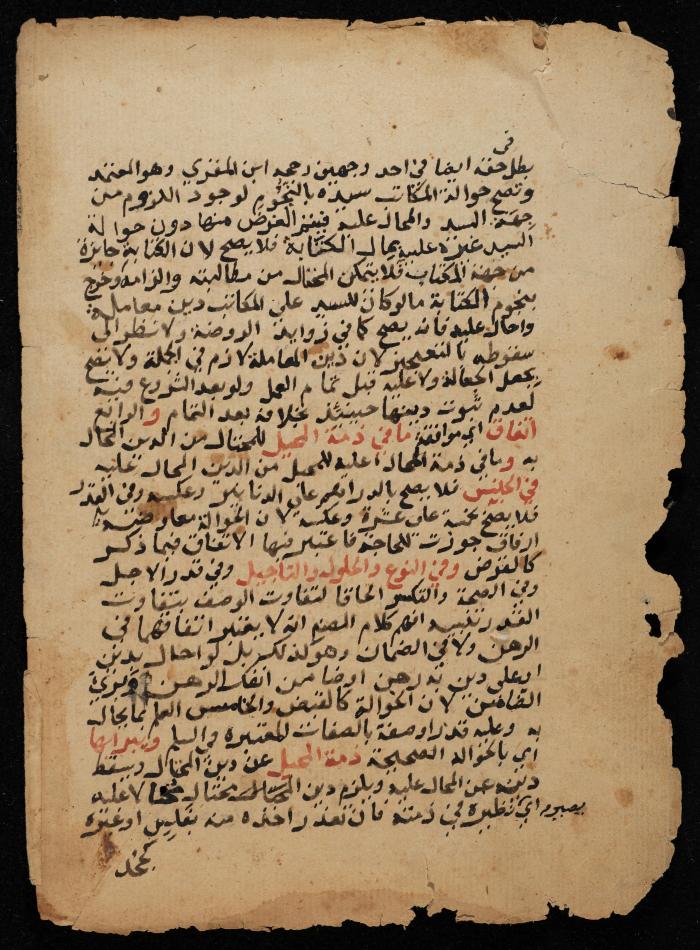 في
بطل حقه ايضا في احد وجهين رجحه ابن المقري وهو المعتمد
وتصح حوالة المكاتب سيده بالنجوم لوجود اللزوم من
جهة السيد والمحال عليه فيتم الغرض منها دون حوالة
السيد غيره عليه بمال الكتابة فلا يصح لان الكتابة جائزة
من جهة المكاتب فلا يتمكن المحتال من مطالبته والزامه وخرج
بنجوم الكتابة ما لو كان للسيد على المكاتب دين معاملة
واحال عليه فانه يصح كما في زوايد الروضة ولا نظر الى
سقوطه بالتعجيز لان دين المعاملة لازم في الجملة ولا تصح
بجعل الجعالة ولا عليه قبل تمام العمل ولو بعد الشروع فيه
لعدم ثبوت دينها حينئذ بخلافه بعد التمام والرابع
اتفاق اي موافقة ما في ذمة المحيل للمحتال من الدين المحال
به وما في ذمة المحال عليه للمحيل من الدين المحال عليه
في الجنس فلا يصح بالدراهم على الدنانير وعكسه وفي القدر
فلا يصح بخمسة على عشرة وعكسه لان الحوالة معاوضة
ارفاق جوزت للحاجة فاعتبر فيها الاتفاق فيما ذكر
كالقرض وفي النوع والحلول والتاجيل وفي قدر الاجل
وفي الصحة والتكسر الحاقا لتفاوت الوصف بتفاوت
القدر تنبيه افهم كلام المصنف انه لا يعتبر اتفاقهما في
الرهن ولا في الضمان وهو كذلك بل لو احال بدين
او على دين به رهن او ضامن انفك الرهن وبري
الضامن لان الحوالة كالقبض والخامس العلم بما يحال
به وعليه قدرا وصفة بالصفات المعتبرة في السلم وتبرا بها
اي بالحوالة الصحيحة ذمة المحيل عن دين المحتال ويسقط
دينه عن المحال عليه ويلزم دين المحتال محتالا عليه
يصير اي نظيره في ذمته فان تعذر اخذه منه بفليس او غيره
كجحد